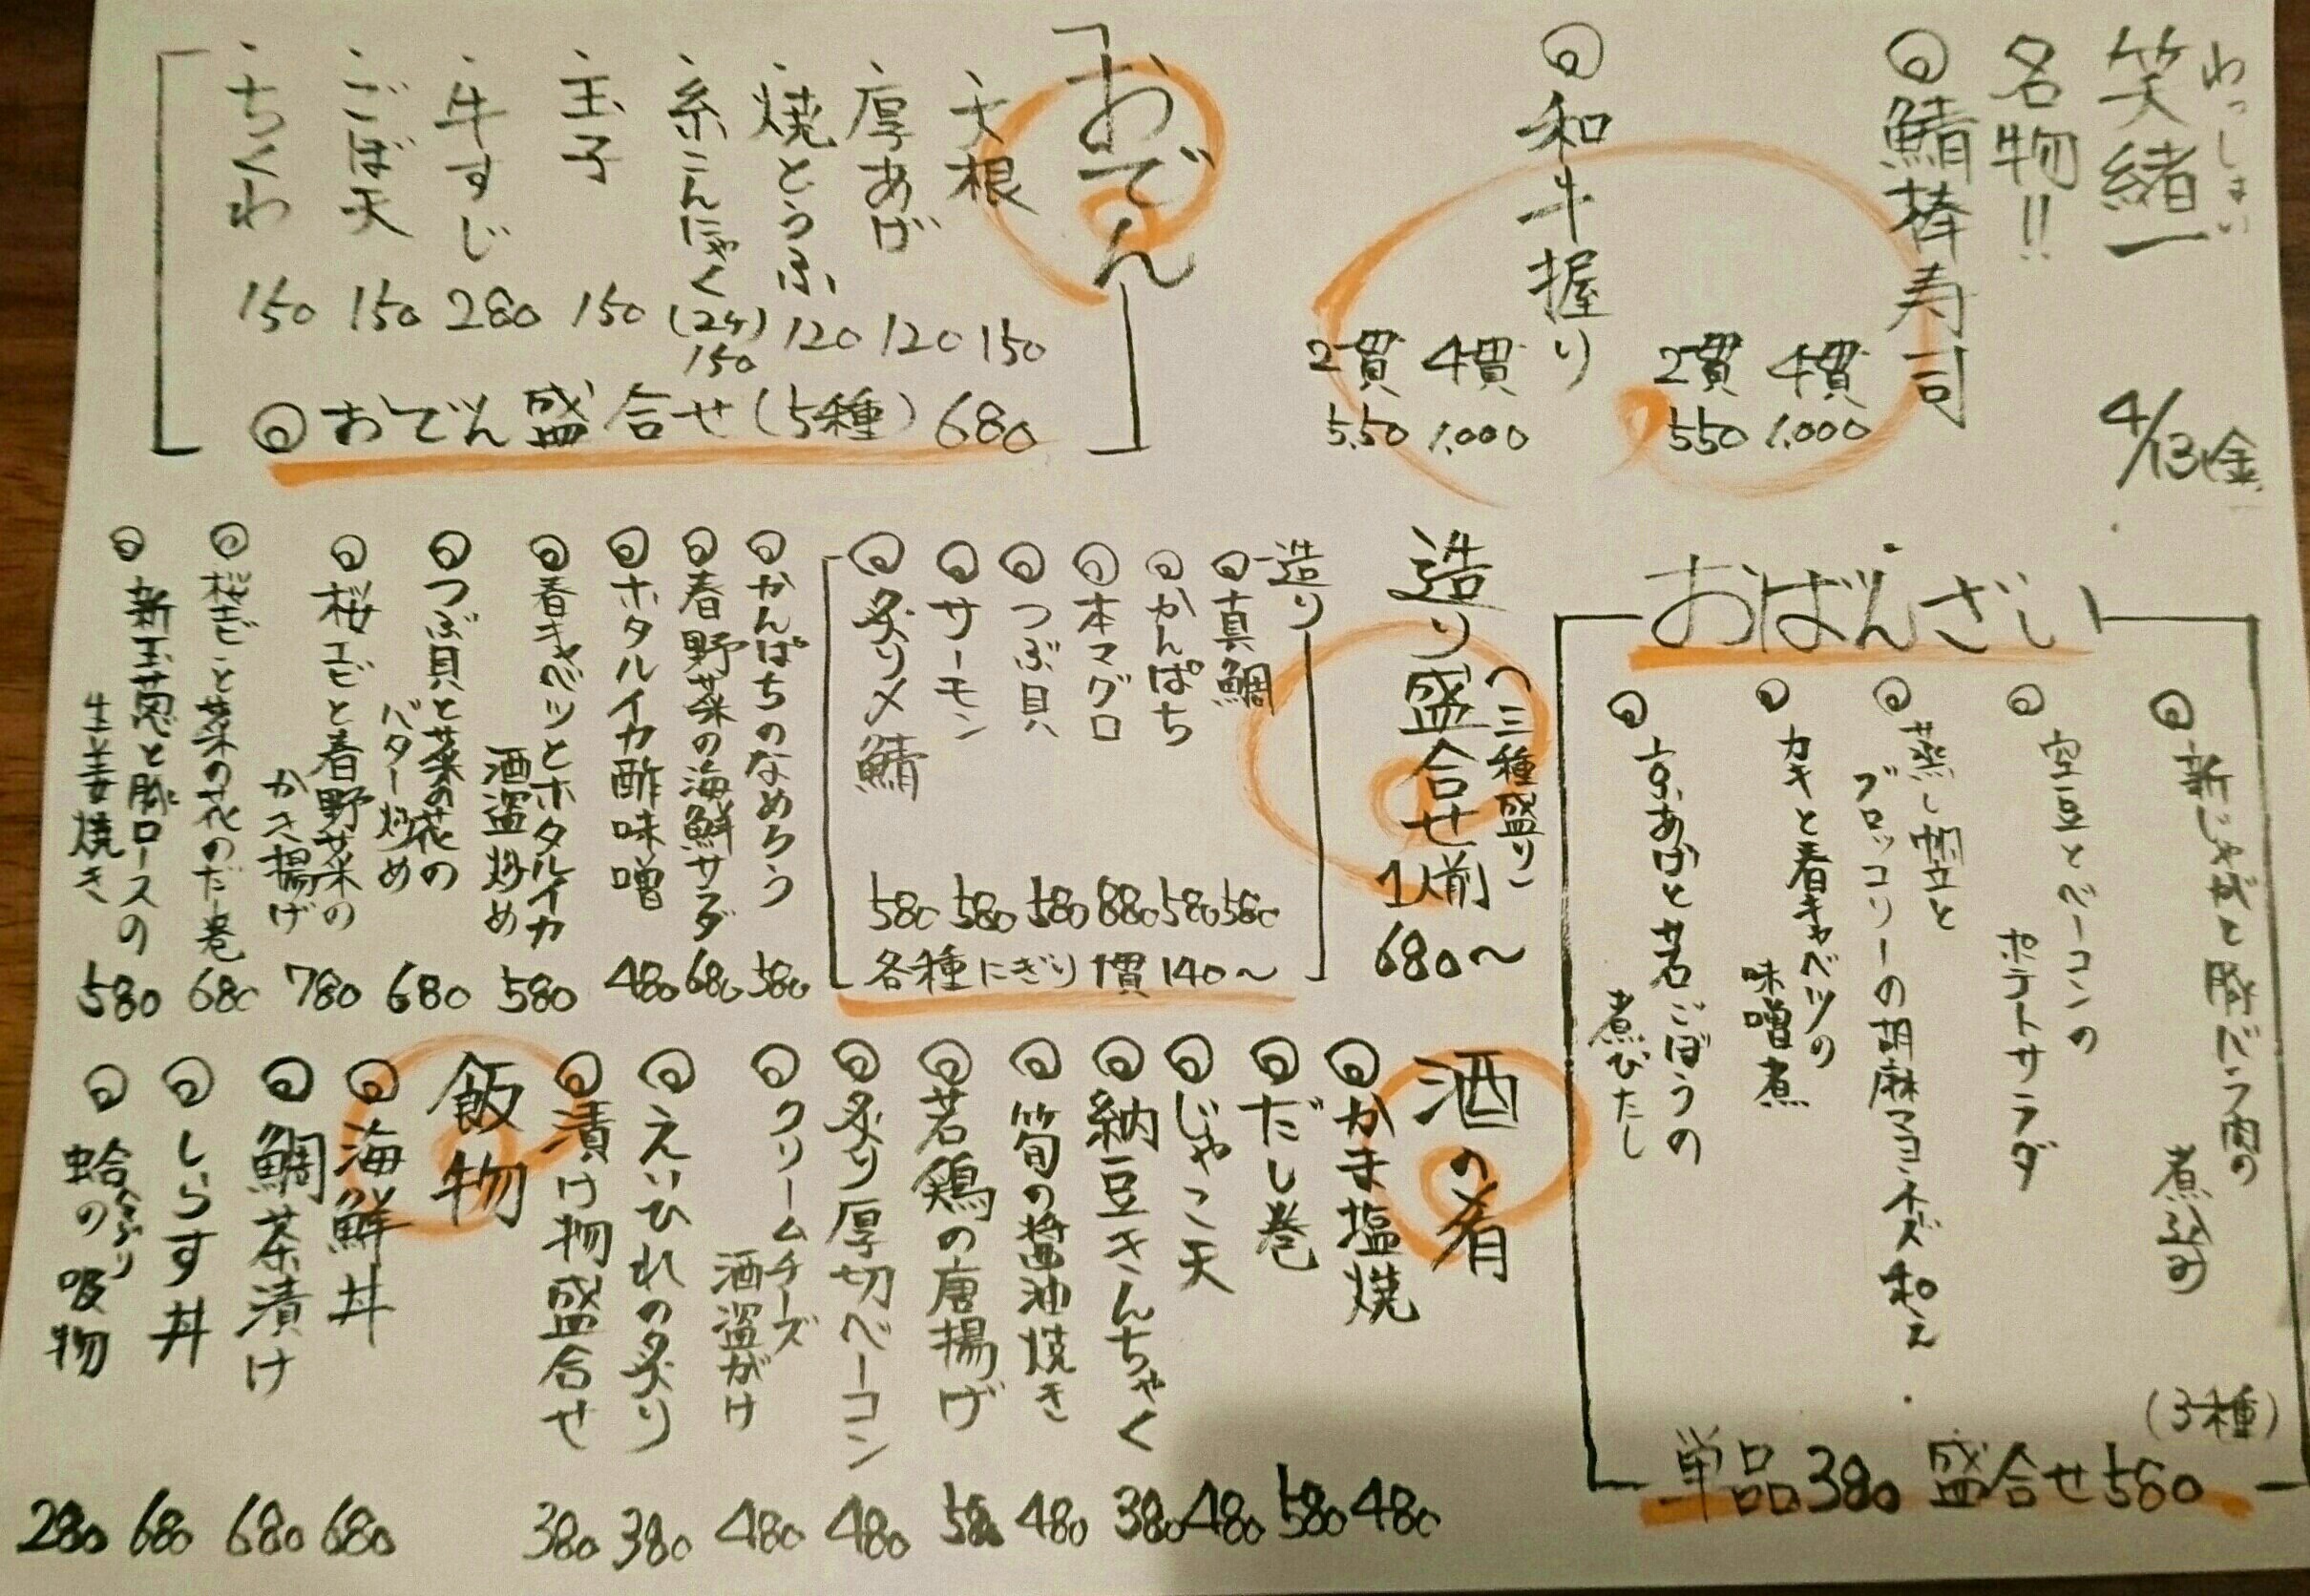 わっしょい
笑緒一
4/13(金)
名物!!
鯖棒寿司
4貫 1.000
2貫 550
和牛握り
4貫 1.000
2貫 550
おでん
・大根 150
・厚あげ 120
・焼とうふ 120
・糸こんにゃく (2ケ) 150
・玉子 150
・牛すじ 280
・ごぼ天 150
・ちくわ 150
おでん盛合せ(5種) 680
おばんざい
新じゃがと豚バラ肉の
煮込み
空豆とベーコンの
ポテトサラダ
蒸し帆立と
ブロッコリーの胡麻マヨネーズ和え
カキと春キャベツの
味噌煮
京あげと若ごぼうの
煮びたし
単品380 盛合せ580
(3種)
(三種盛り)
造り盛合せ 1人前 680〜
造り
真鯛 580
かんぱち 580
本マグロ 880
つぶ貝 580
サーモン 580
炙り〆鯖 580
各種にぎり 1貫 140〜
かんぱちのなめろう 580
春野菜の海鮮サラダ 680
ホタルイカ酢味噌 480
春キャベツとホタルイカ
酒盗炒め 580
つぶ貝と菜の花の
バター炒め 680
桜エビと春野菜の
かき揚げ 780
桜エビと菜の花のだし巻 680
新玉葱と豚ロースの
生姜焼き 580
酒の肴
かま塩焼 480
だし巻 580
じゃこ天 480
納豆きんちゃく 380
筍の醤油焼き 480
若鶏の唐揚げ 580
炙り厚切ベーコン 480
クリームチーズ
酒盗がけ 480
えいひれの炙り 380
漬け物盛合せ 380
飯物
海鮮丼 680
鯛茶漬け 680
しらす丼 680
蛤の吸物 280